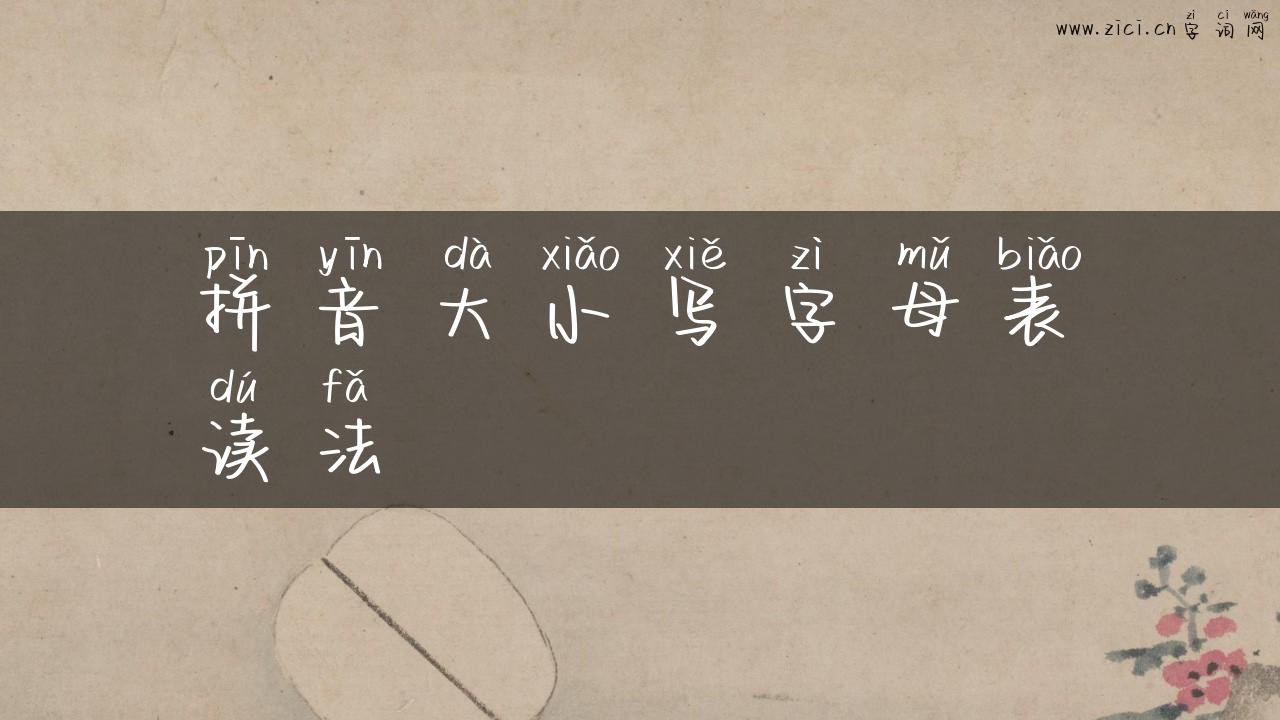 zì cí wǎng
www.zici.cn 字 词 网
pīn yīn dà xiǎo xiě zì mǔ biǎo
拼 音 大 小 写 字 母 表
dú fǎ
读 法